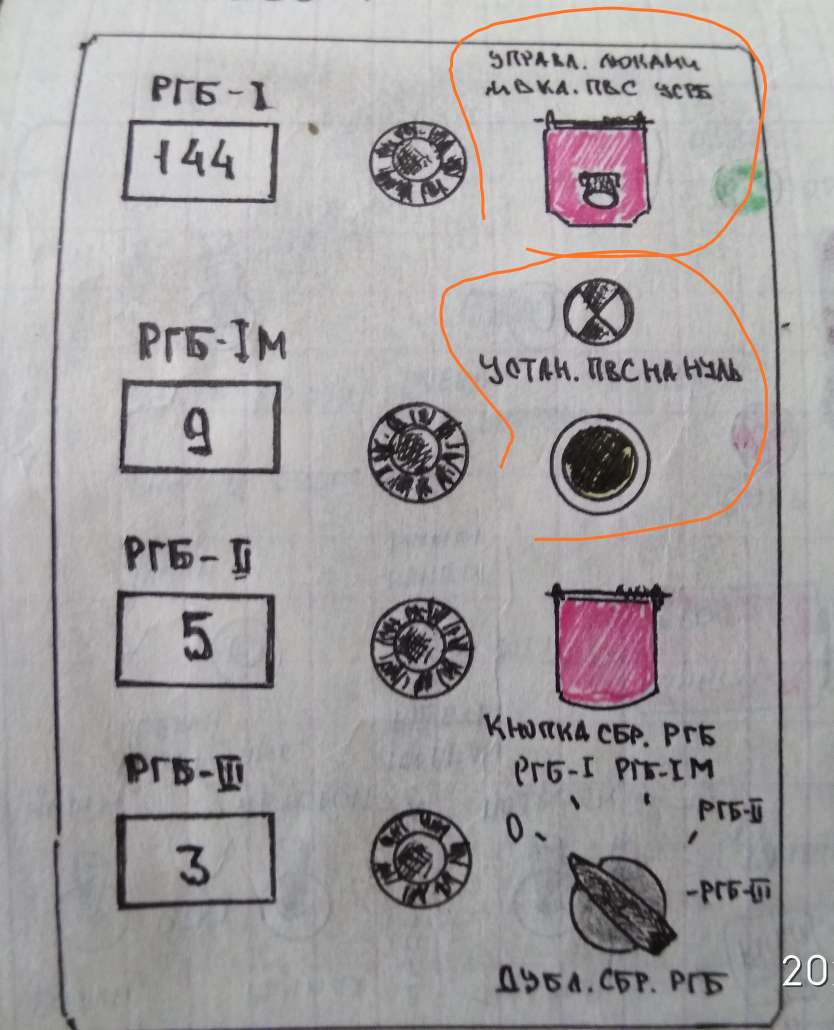 УПРАВЛ. ЛЮКАМИ
И ВКЛ. ПВС УСРБ
РГБ-I
144
РГБ-IМ
9
УСТАН. ПВС НА НУЛЬ
РГБ-II
5
КНОПКА СБР. РГБ
РГБ-III
3
РГБ-I РГБ-IМ
0
РГБ-II
-РГБ-III
ДУБЛ. СБР. РГБ